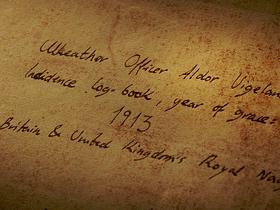 Weather Officer Aldor Vigeland
Incidence log-book, year of grace:
1913
Britain & United Kingdom's Royal Na